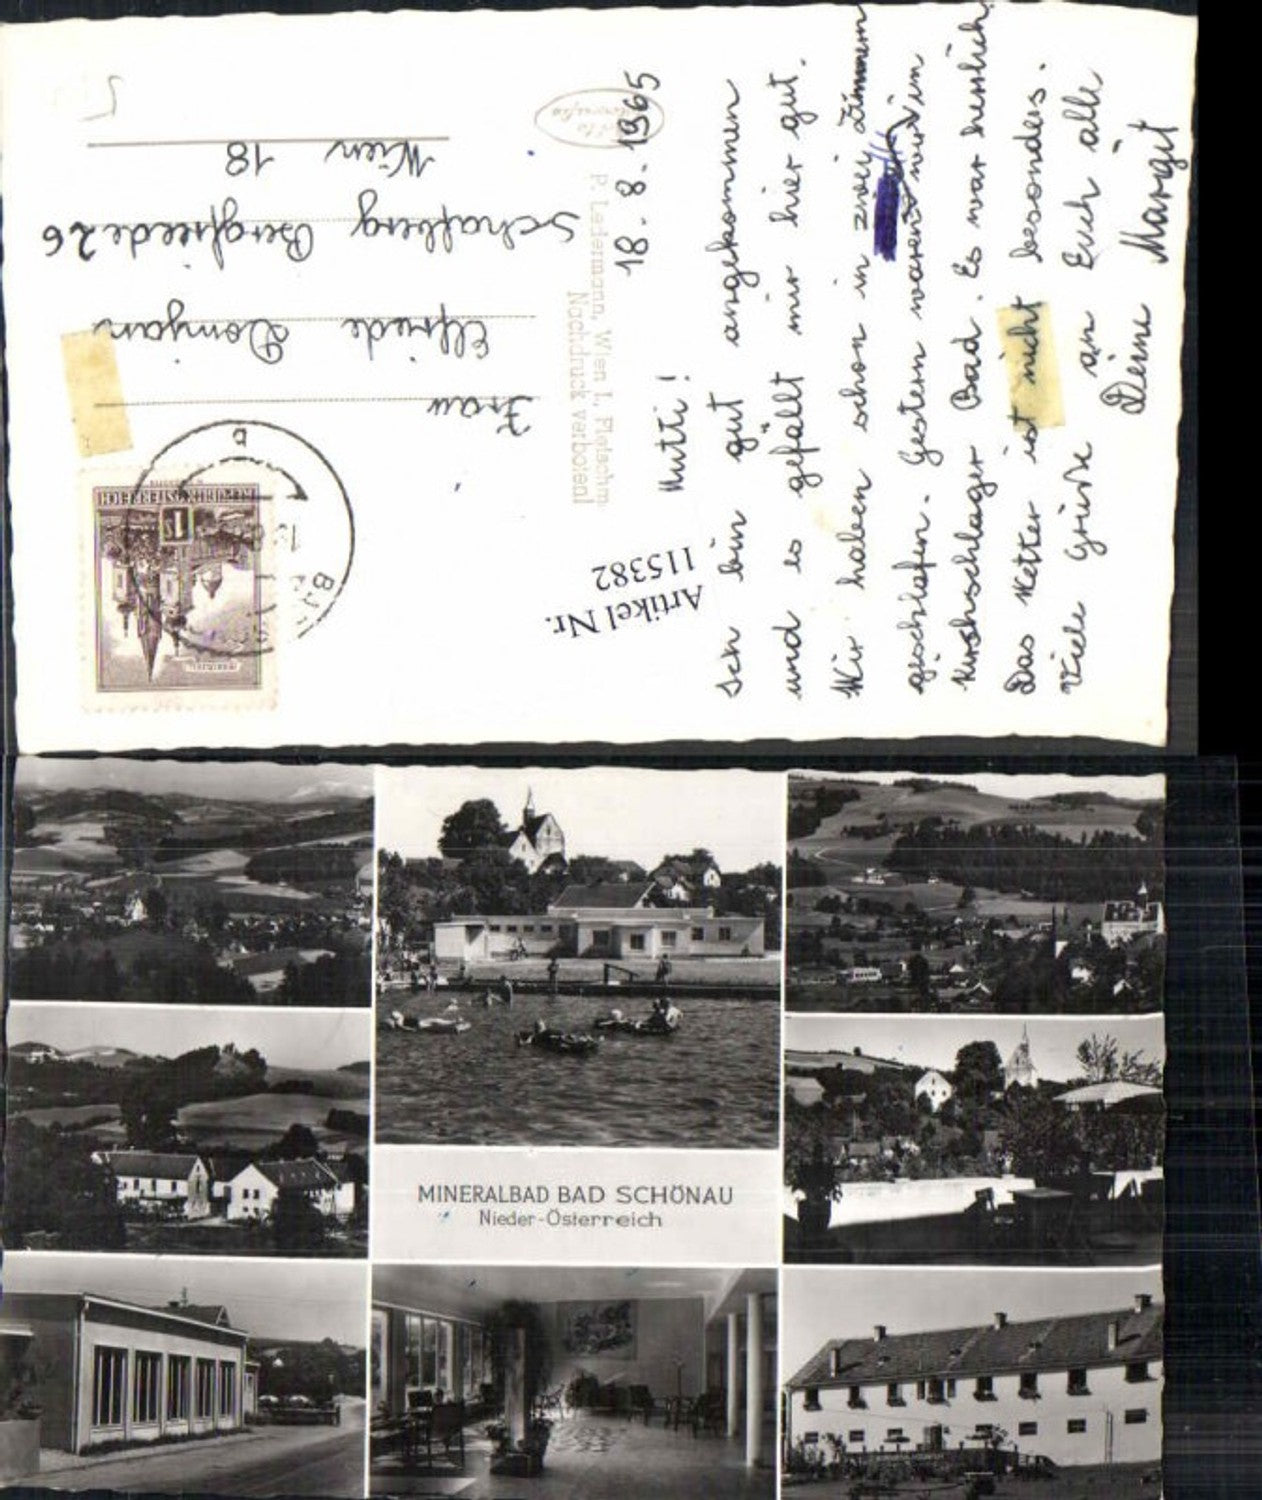 18. 8. 1965
Mutti!
Ich bin gut angekommen
und es gefällt mir hier gut.
Wir haben schon in zwei Zimmern
geschlafen. Gestern waren wir im
Kirchschlager Bad. Es war herrlich
Das Wetter ist nicht besonders.
Viele Grüße an Euch alle
Deine Margit
Frau
Elfriede Domjan
Schafberg Bergfriede 26
Wien 18
P. Ledermann, Wien I, Fleischm
Nachdruck verboten!
Artikel Nr.
115382
REPUBLIK ÖSTERREICH
MINERALBAD BAD SCHÖNAU
Nieder-Österreich